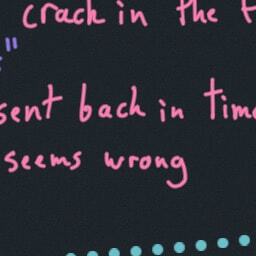 crack in the t
"
sent back in time
seems wrong